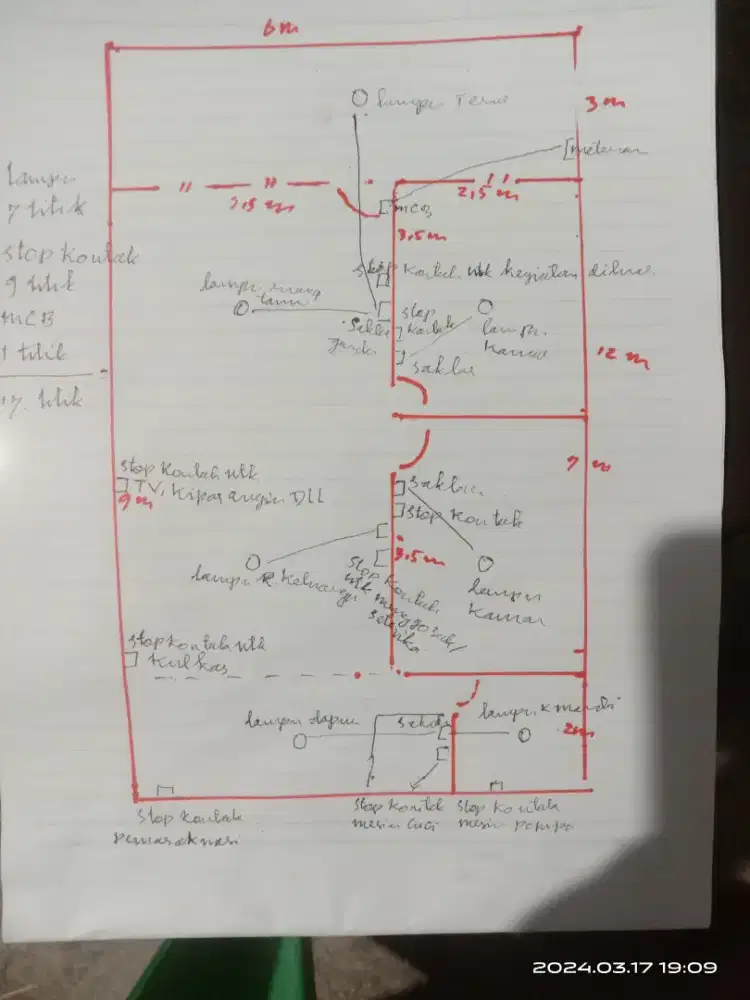 6 m
lampu Teras
3 m
meteran
" "
" "
3,5 m
2,5 m
MCB
3,5 m
lampu
7 titik
stop kontak
9 titik
MCB
1 titik
17 titik
stop kontak utk kegiatan diluar
lampu ruang
tamu
saklar
ganda
stop
kontak
lampu
kamar
saklar
12 m
stop kontak utk
TV, kipas angin DLL
9 m
7 m
saklar
stop kontak
3,5 m
lampu R. keluarga
stop kontak
utk menggosok/
setrika
lampu
kamar
stop kontak utk
kulkas
lampu dapur
saklar
lampu k mandi
2m
stop kontak
pemasak nasi
stop kontak
mesin cuci
stop kontak
mesin pompa
2024.03.17 19:09